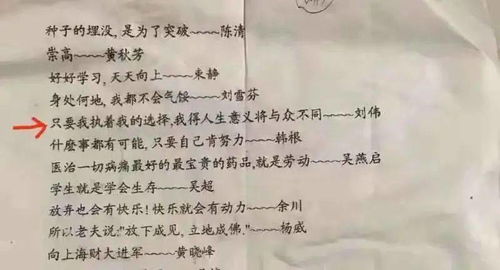 种子的埋没,是为了突破~~~~陈清
崇高~~~~黄秋芳
好好学习,天天向上~~~~束静
身处何地,我都不会气馁~~~~刘雪芬
只要我执着我的选择,我得人生意义将与众不同~~~~刘伟
什麽事都有可能,只要自己肯努力~~~~韩根
医治一切病痛最好的最宝贵的药品,就是劳动~~~~吴燕启
学生就是学会生存~~~~吴超
放弃也会有快乐!快乐就会有动力~~~~余川
所以老夫说:"放下成见,立地成佛."~~~~杨威
向上海财大进军~~~~黄晓峰